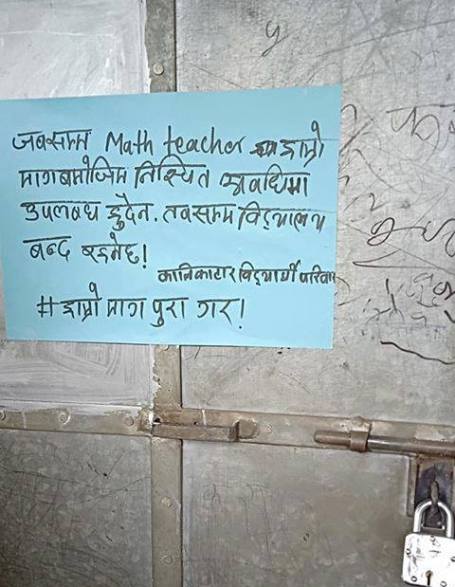 जबसम्म Math teacher हाम्रो
मागबमोजिम निश्चित अवधिमा
उपलबध हुदैन. तबसम्म विद्यालय
बन्द रहनेछ!
कानिकाटार विद्यार्थी परिवार
# हाम्रो माग पुरा गर!